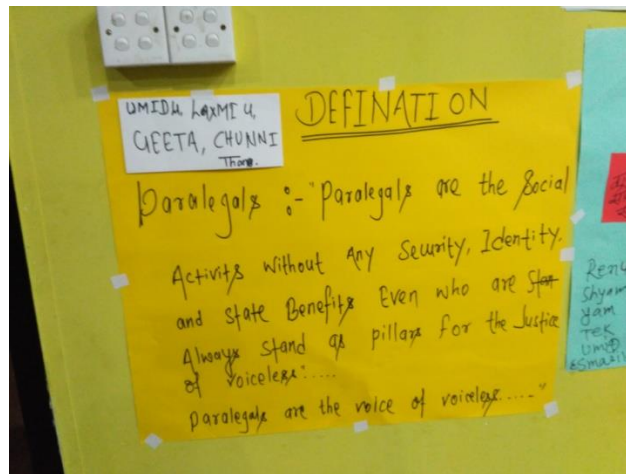 UMIDU, LAXMI U,
GEETA, CHUNNI
DEFINATION
Paralegals :- "Paralegals are the Social
Activits without Any Security, Identity.
and State Benefits Even who are
Always stand as pillars for the Justice
of voiceless".....
Paralegals are the voice of voiceless....."
Renu
Shyam
yam
Tek
Umid